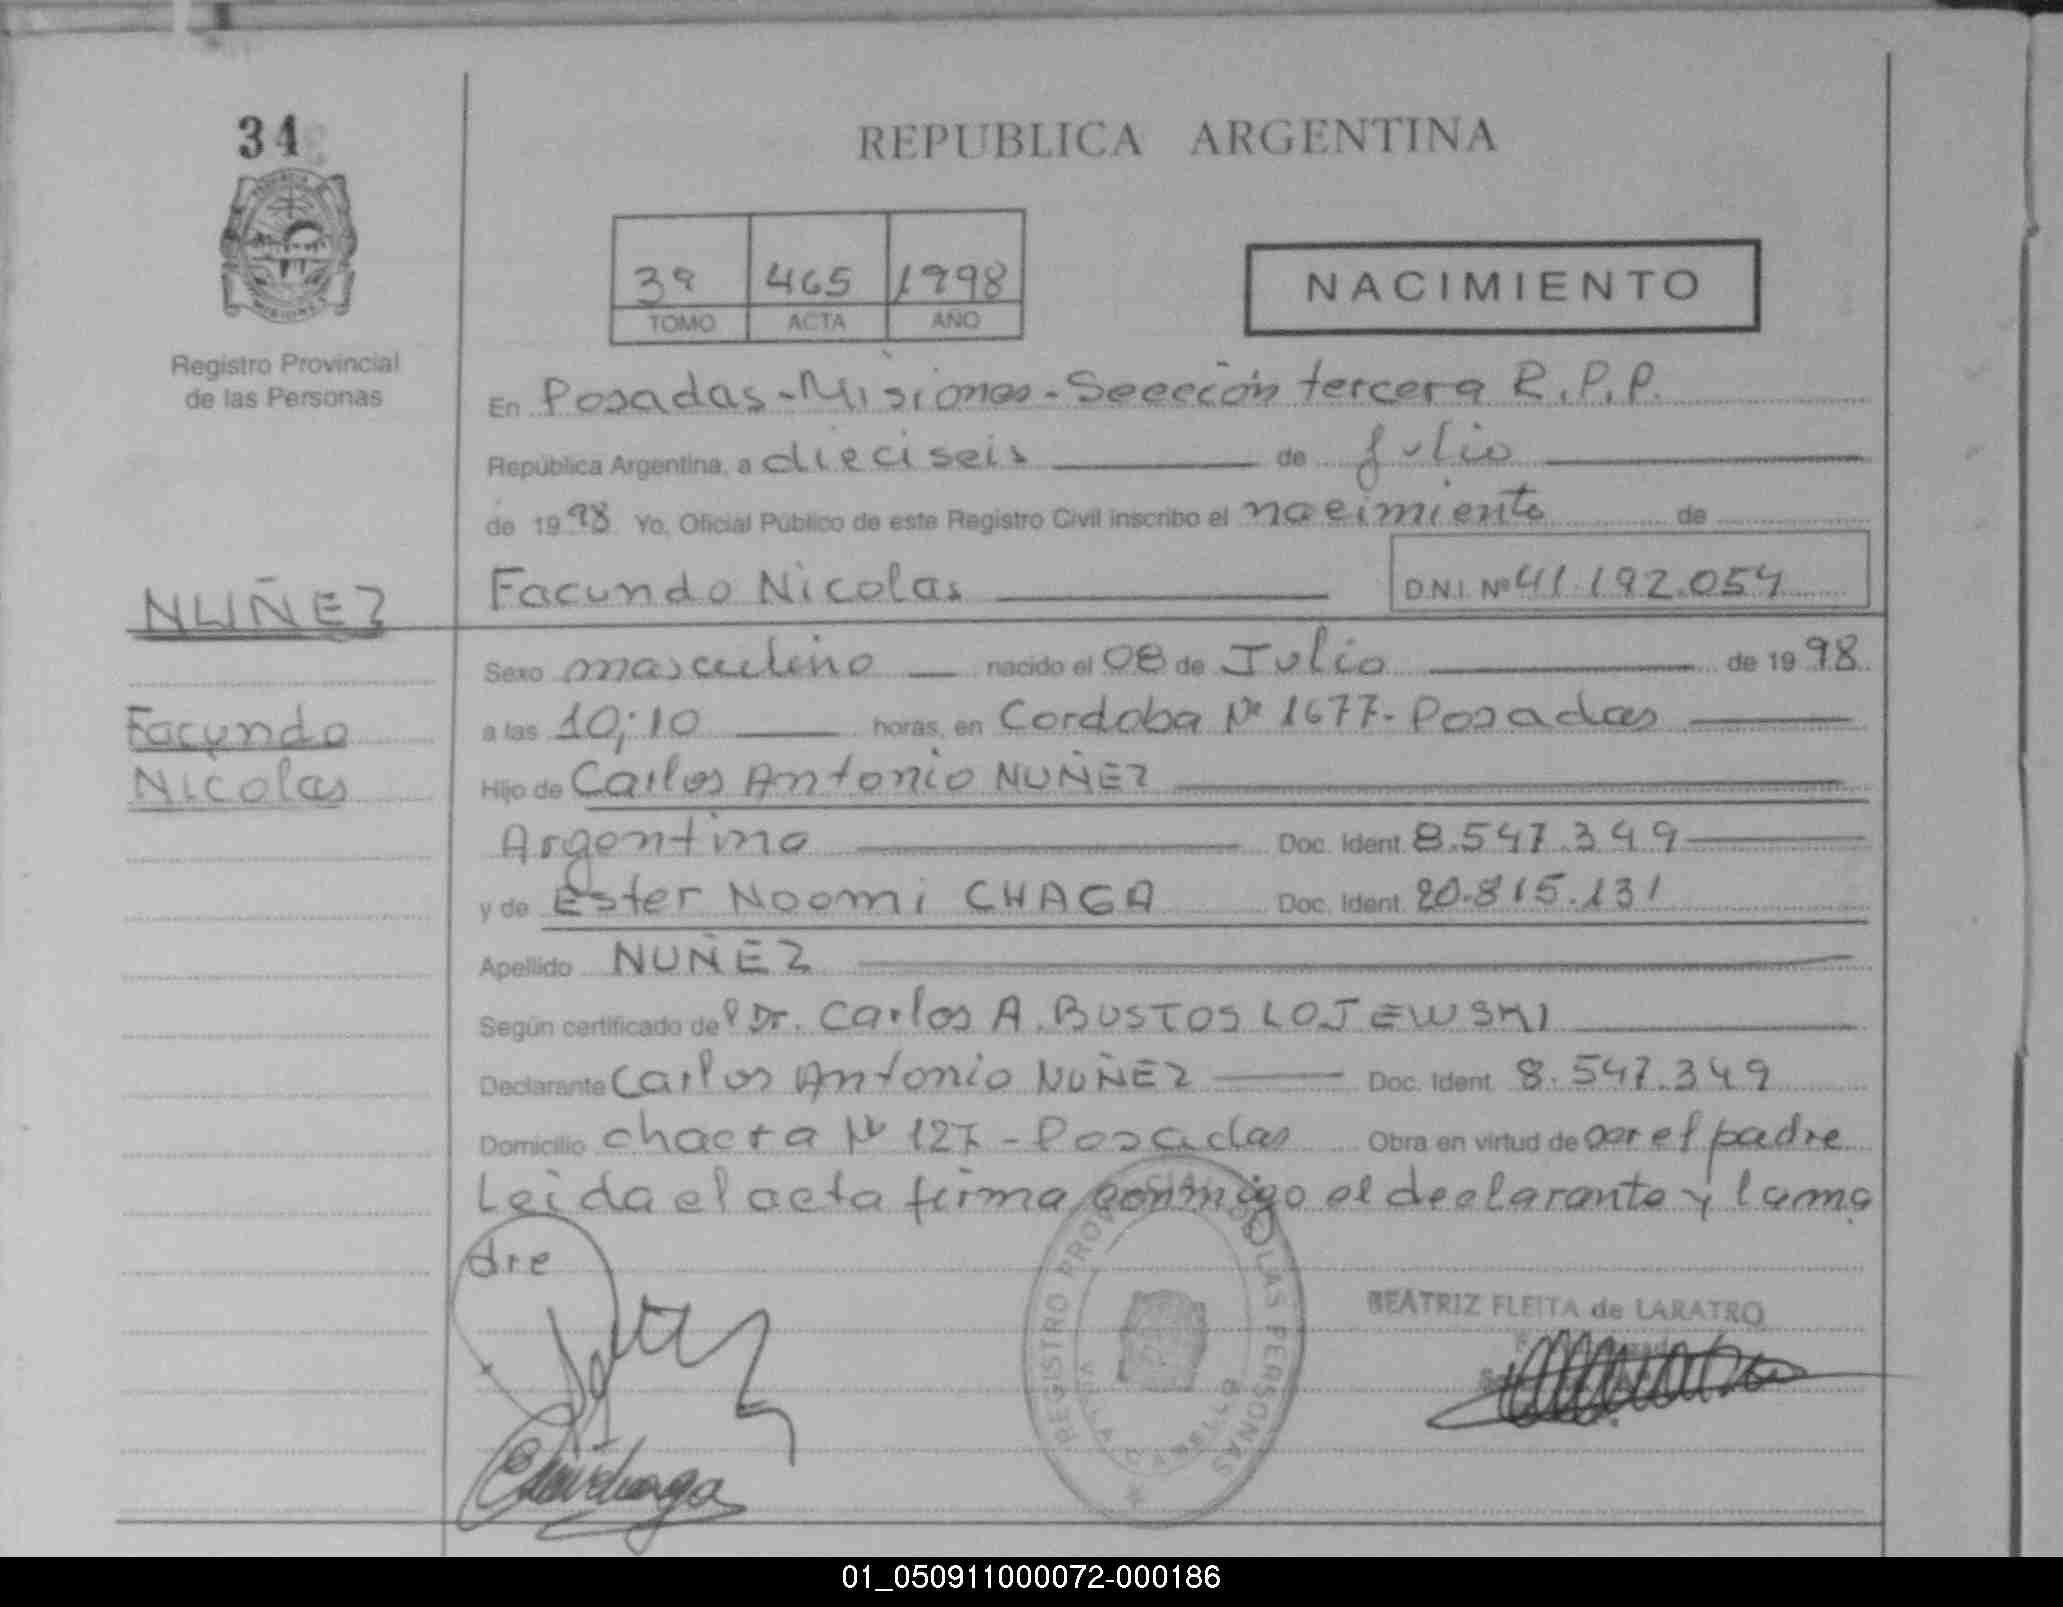 34
REPUBLICA ARGENTINA
39 465 1998
TOMO ACTA AÑO
NACIMIENTO
Registro Provincial
de las Personas
En Posadas-Misiones-Sección tercera R.P.P.
República Argentina, a dieciseis de Julio
de 1998 Yo, Oficial Público de este Registro Civil inscribo el nacimiento de
NUÑEZ
Facundo Nicolas D.N.I. Nº 41.192.054
Sexo masculino nacido el 08 de Julio de 1998
Facundo
Nicolas
a las 10;10 horas, en Cordoba Nº 1677-Posadas
Hijo de Carlos Antonio NUÑEZ
Argentino Doc. Ident. 8.547.349
y de Ester Noemi CHAGA Doc. Ident. 20.815.131
Apellido NUÑEZ
Según certificado del Dr. Carlos A. BUSTOS LOJEWSKI
Declarante Carlos Antonio NUÑEZ Doc. Ident. 8.547.349
Domicilio chacra Nº 127-Posadas Obra en virtud de ser el padre
Leida el acta firma conmigo el declarante y la ma
dre
REGISTRO PROVINCIAL DE LAS PERSONAS
VILLA CABELLO
BEATRIZ FLEITA de LARATRO
01_050911000072-000186